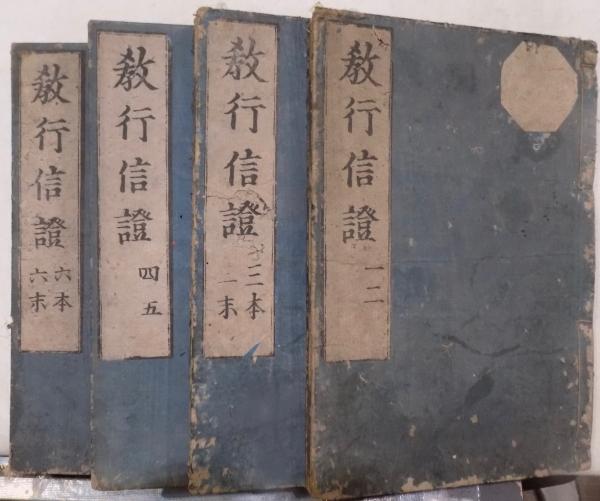 教行信證
一二
教行信證
三本
末
教行信證
四
五
教行信證
六本
六末